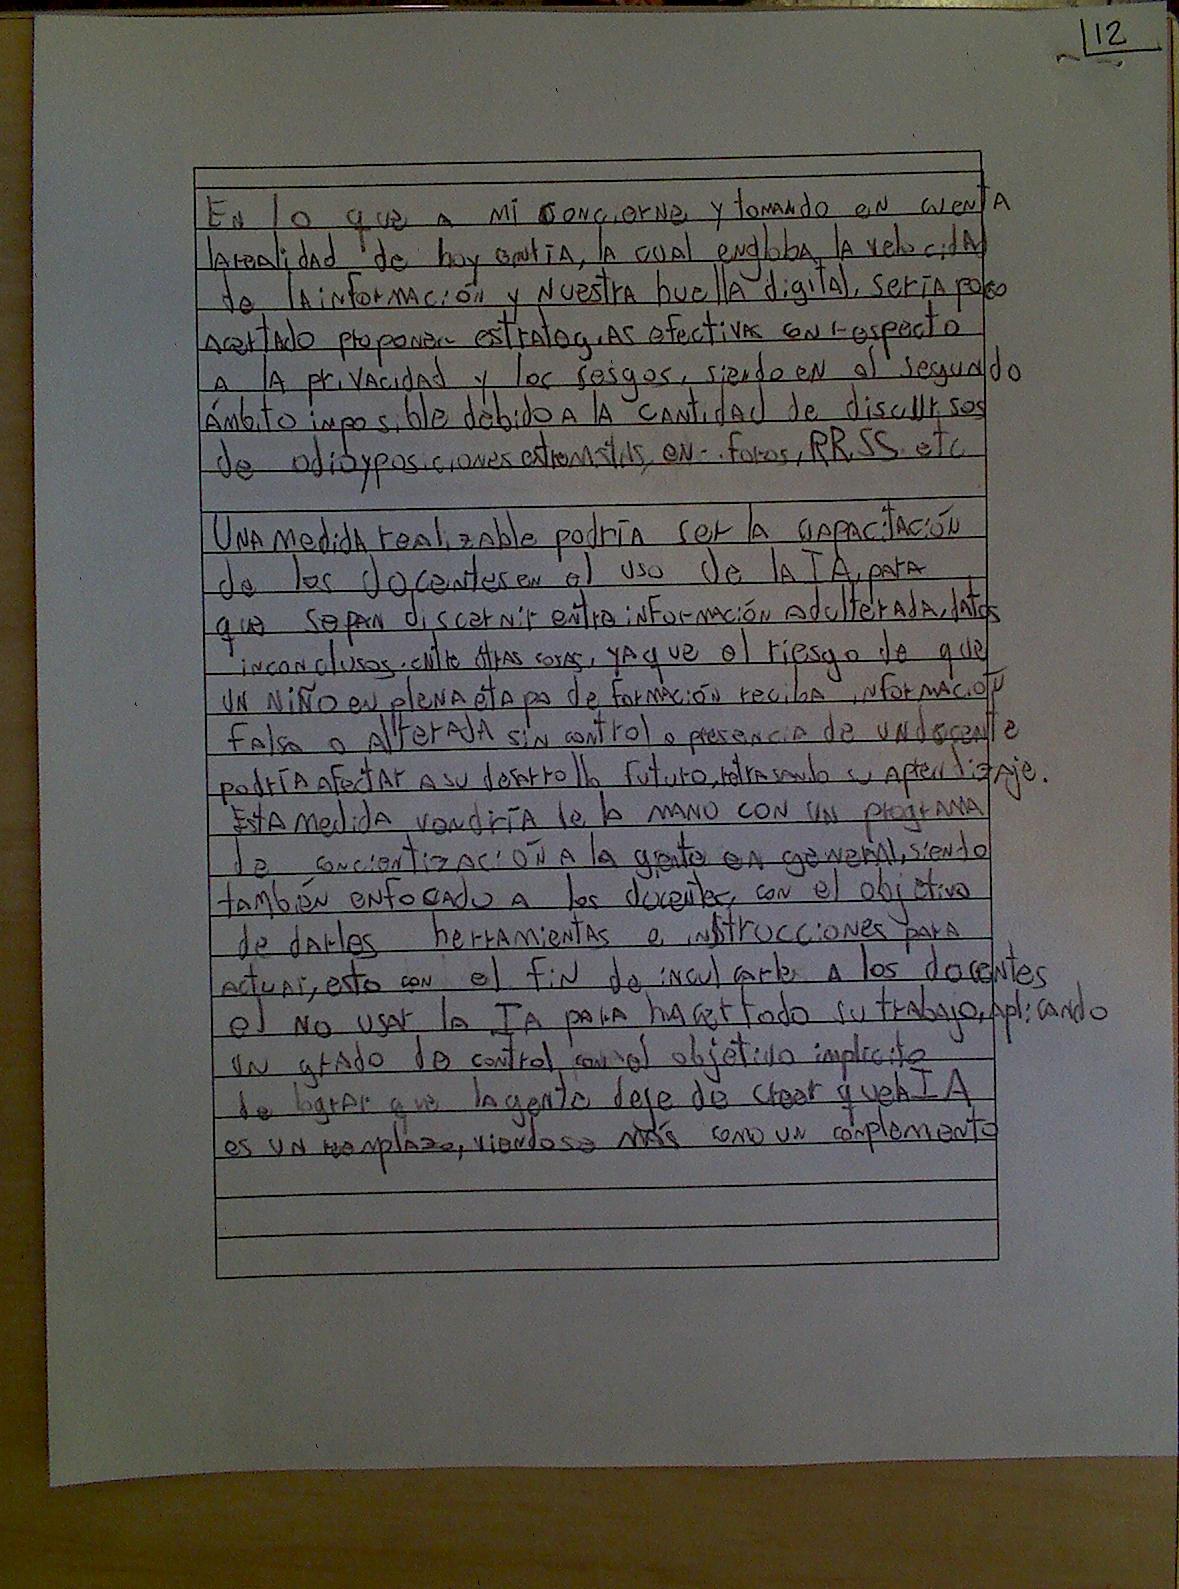 12
En lo que a mi concierne, y tomando en cuenta
la realidad de hoy en día, la cual engloba la velocidad
de la información y nuestra huella digital, sería poco
acertado proponer estrategias efectivas con respecto
a la privacidad y los sesgos, siendo en el segundo
ámbito imposible debido a la cantidad de discursos
de odio y posiciones extremistas en foros, RRSS. etc
Una medida realizable podría ser la capacitación
de los docentes en el uso de la IA, para
que sepan discernir entre información adulterada, datos
inconclusos, entre otras cosas, ya que el riesgo de que
un niño en plena etapa de formación reciba información
falsa o alterada sin control o presencia de un docente
podría afectar a su desarrollo futuro, retrasando su aprendizaje.
Esta medida vendría de la mano con un programa
de concientización a la gente en general, siendo
también enfocado a los docentes, con el objetivo
de darles herramientas e instrucciones para
actuar, esto con el fin de inculcarles a los docentes
el no usar la IA para hacer todo su trabajo, aplicando
un grado de control, con el objetivo implícito
de lograr que la gente deje de creer que la IA
es un remplazo, viendose más como un complemento